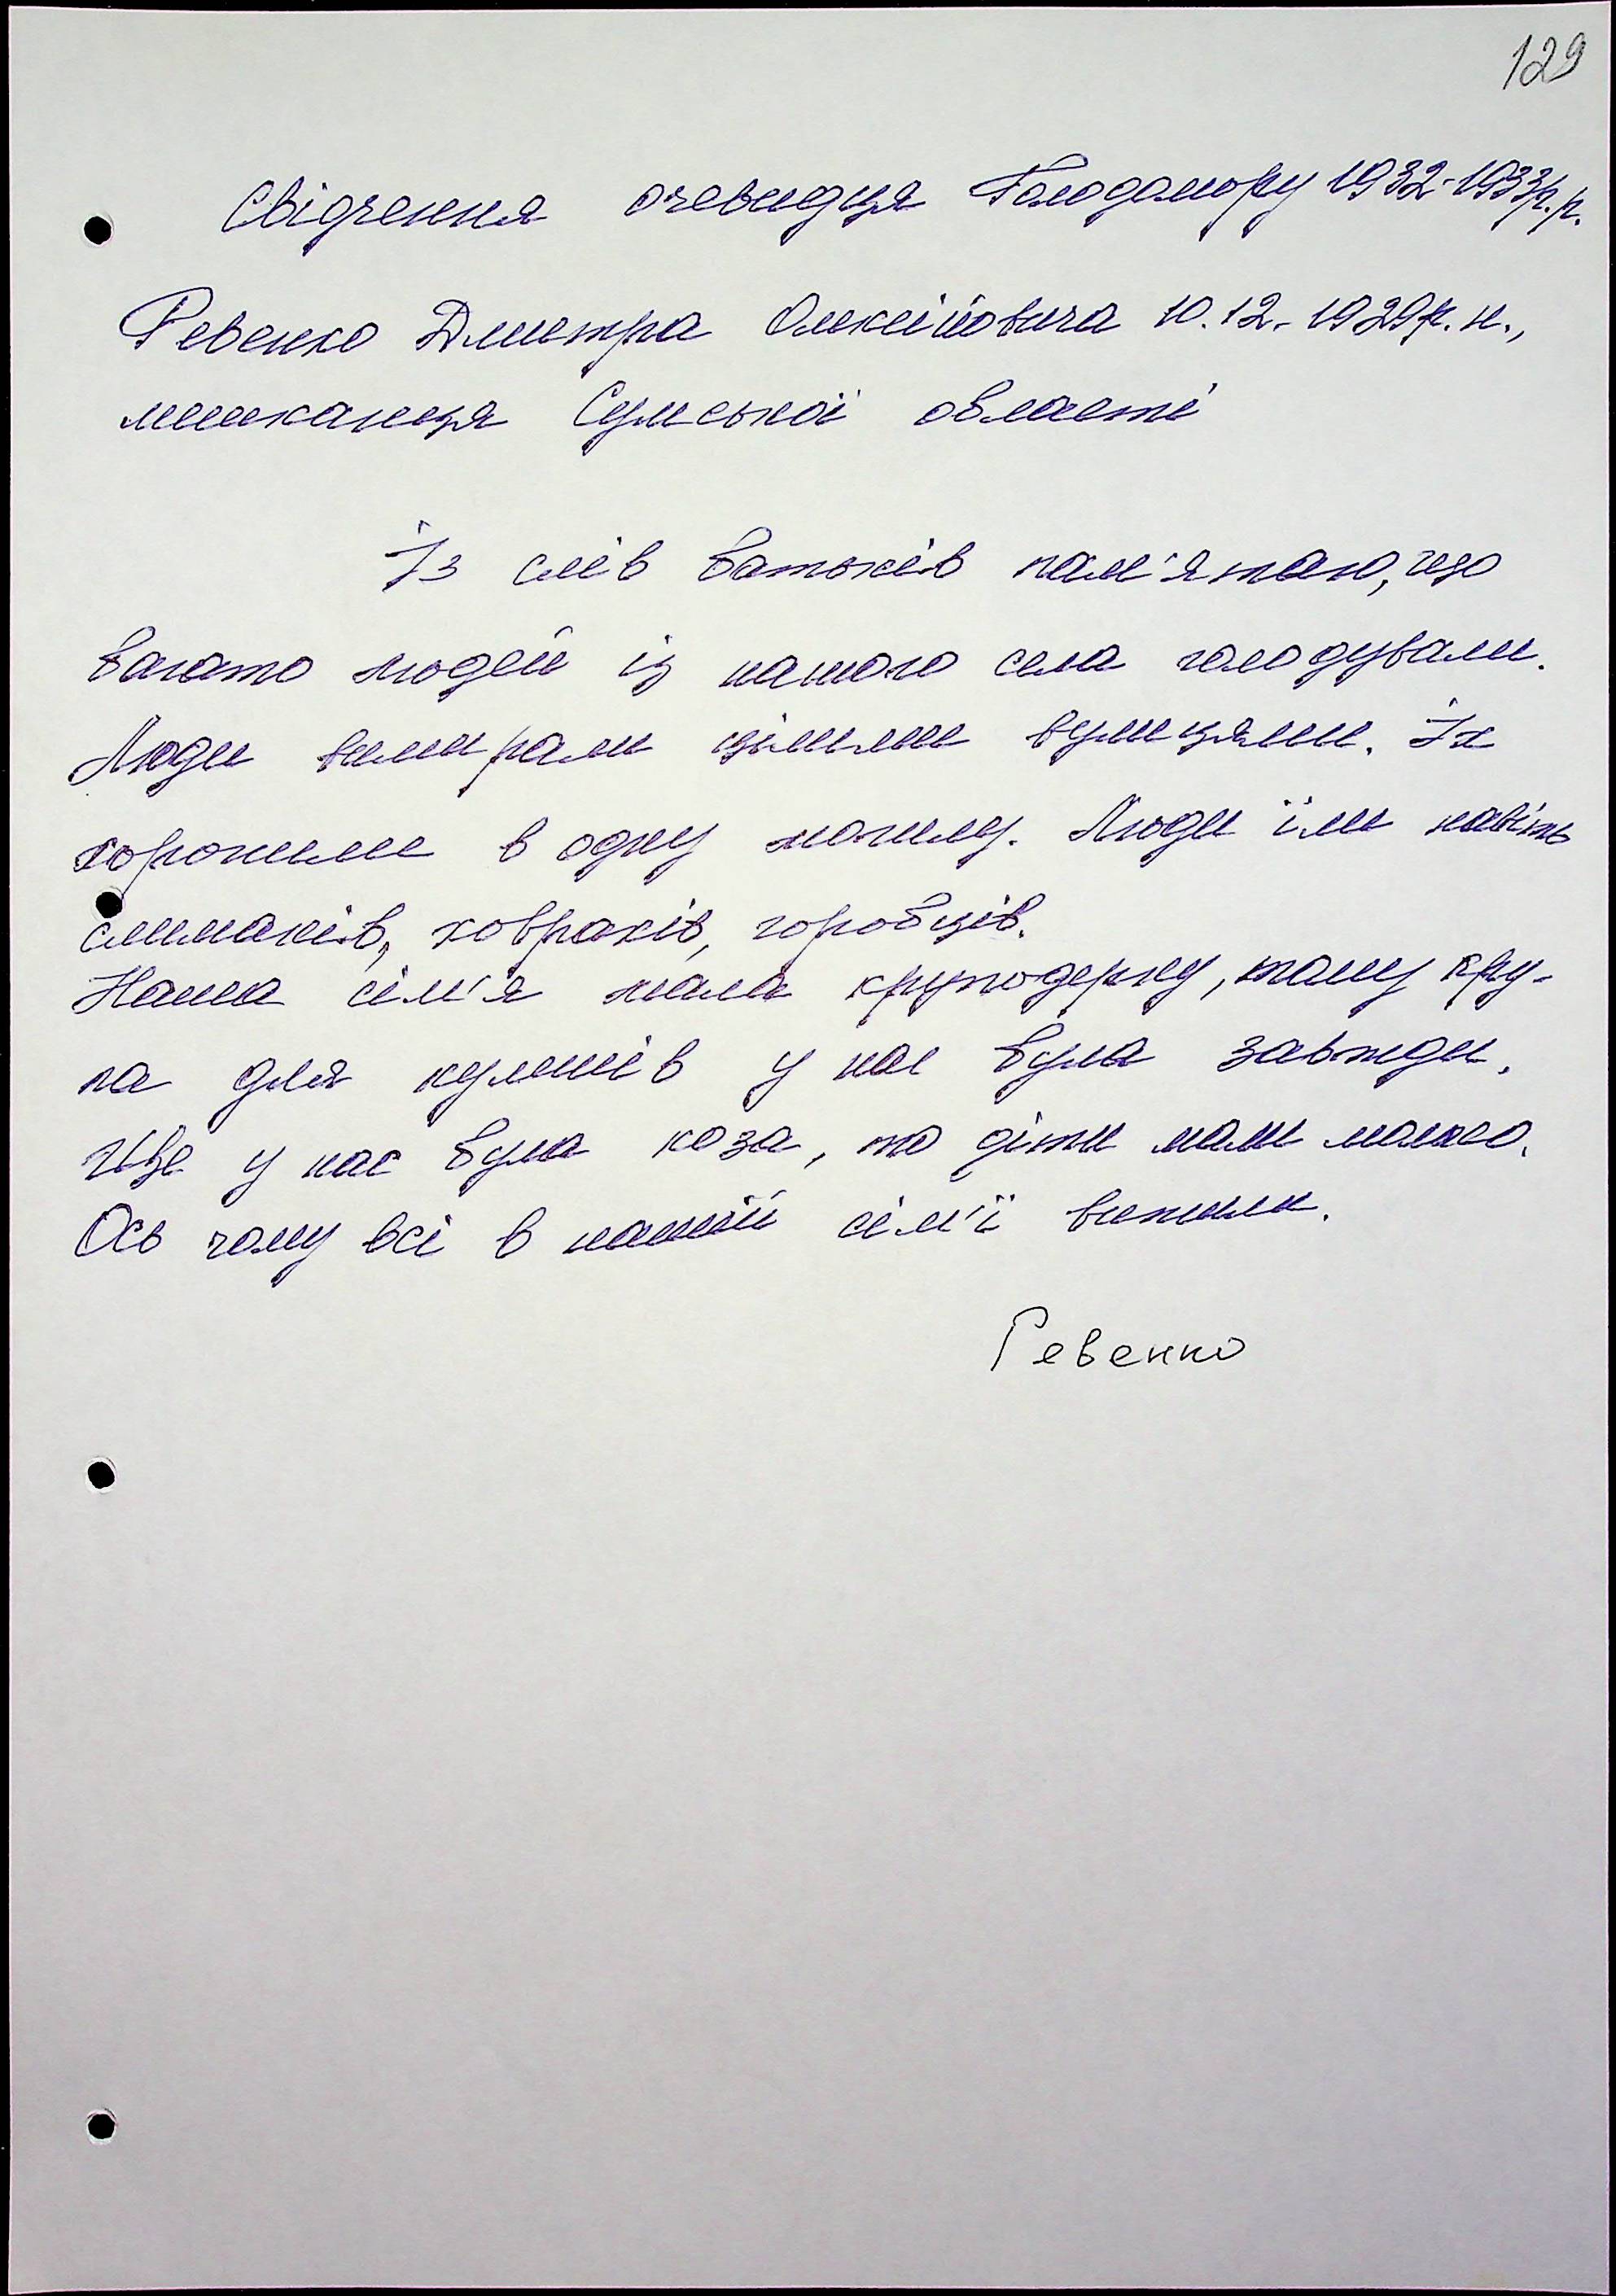 129
Свідчення очевидця Голодомору 1932-1933р.р.
Ревенко Дмитра Олексійовича 10.12.1929р.н.,
мешканця Сумської області
Із слів батьків пам'ятаю, що
багато людей із нашого села голодували.
Люди вимирали цілими вулицями. Їх
хоронили в одну могилу. Люди їли навіть
слимаків, ховрахів, горобців.
Наша сім'я мала круподерку, тому кру-
па для кулешів у нас була завжди.
Ще у нас була коза, то діти мали молоко.
Ось чому всі в нашій сім'ї вижили.
Ревенко